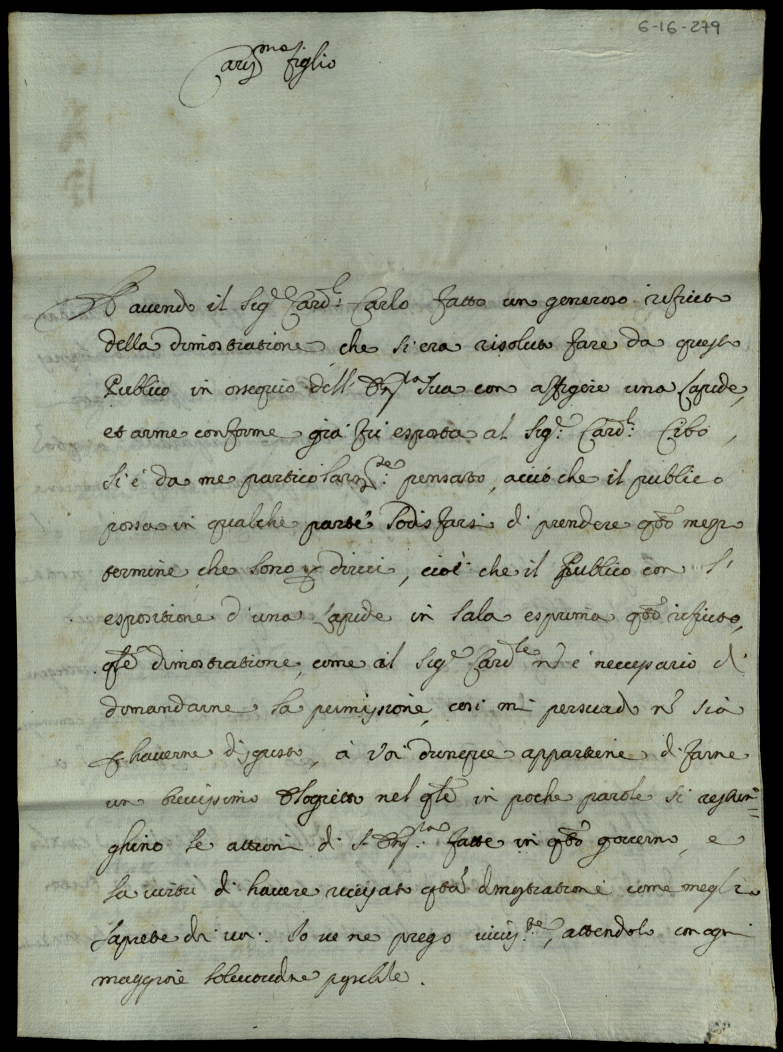 6-16-279
Cariss.mo figlio
Havendo il Sig.r Card.l Carlo fatto un generoso rifiuto
della dimostratione, che si era risoluta fare da questo
Publico in ossequio dell' Em.za Sua con affigere una Lapide,
et arme conforme già fù esposto al Sig.r Card.l Cibo,
si è da me particolarm.te pensato, acciò che il publico
possa in qualche parte sodisfarsi di prendere q.to mezzo
termine, che sono p dirvi, cioè che il Publico con l'
espositione d'una Lapide in Sala esprima q.to rifiuto,
q.le dimostratione, come al Sig.r Card.le nō è necessario di
domandarne la permissione, così mi persuado nō sia
p haverne disgusto, à Voi dunque appartiene di farne
un brevissimo Elogietto nel q.le in poche parole si restrin=
ghino le attioni di S. Em.za fatte in q.to governo, e
la virtù di havere ricusato q.ta dimostratione come meglio
saprete di voi. Io ve ne prego viviss.te, attendolo con ogni
maggiore solicitudine possibile.